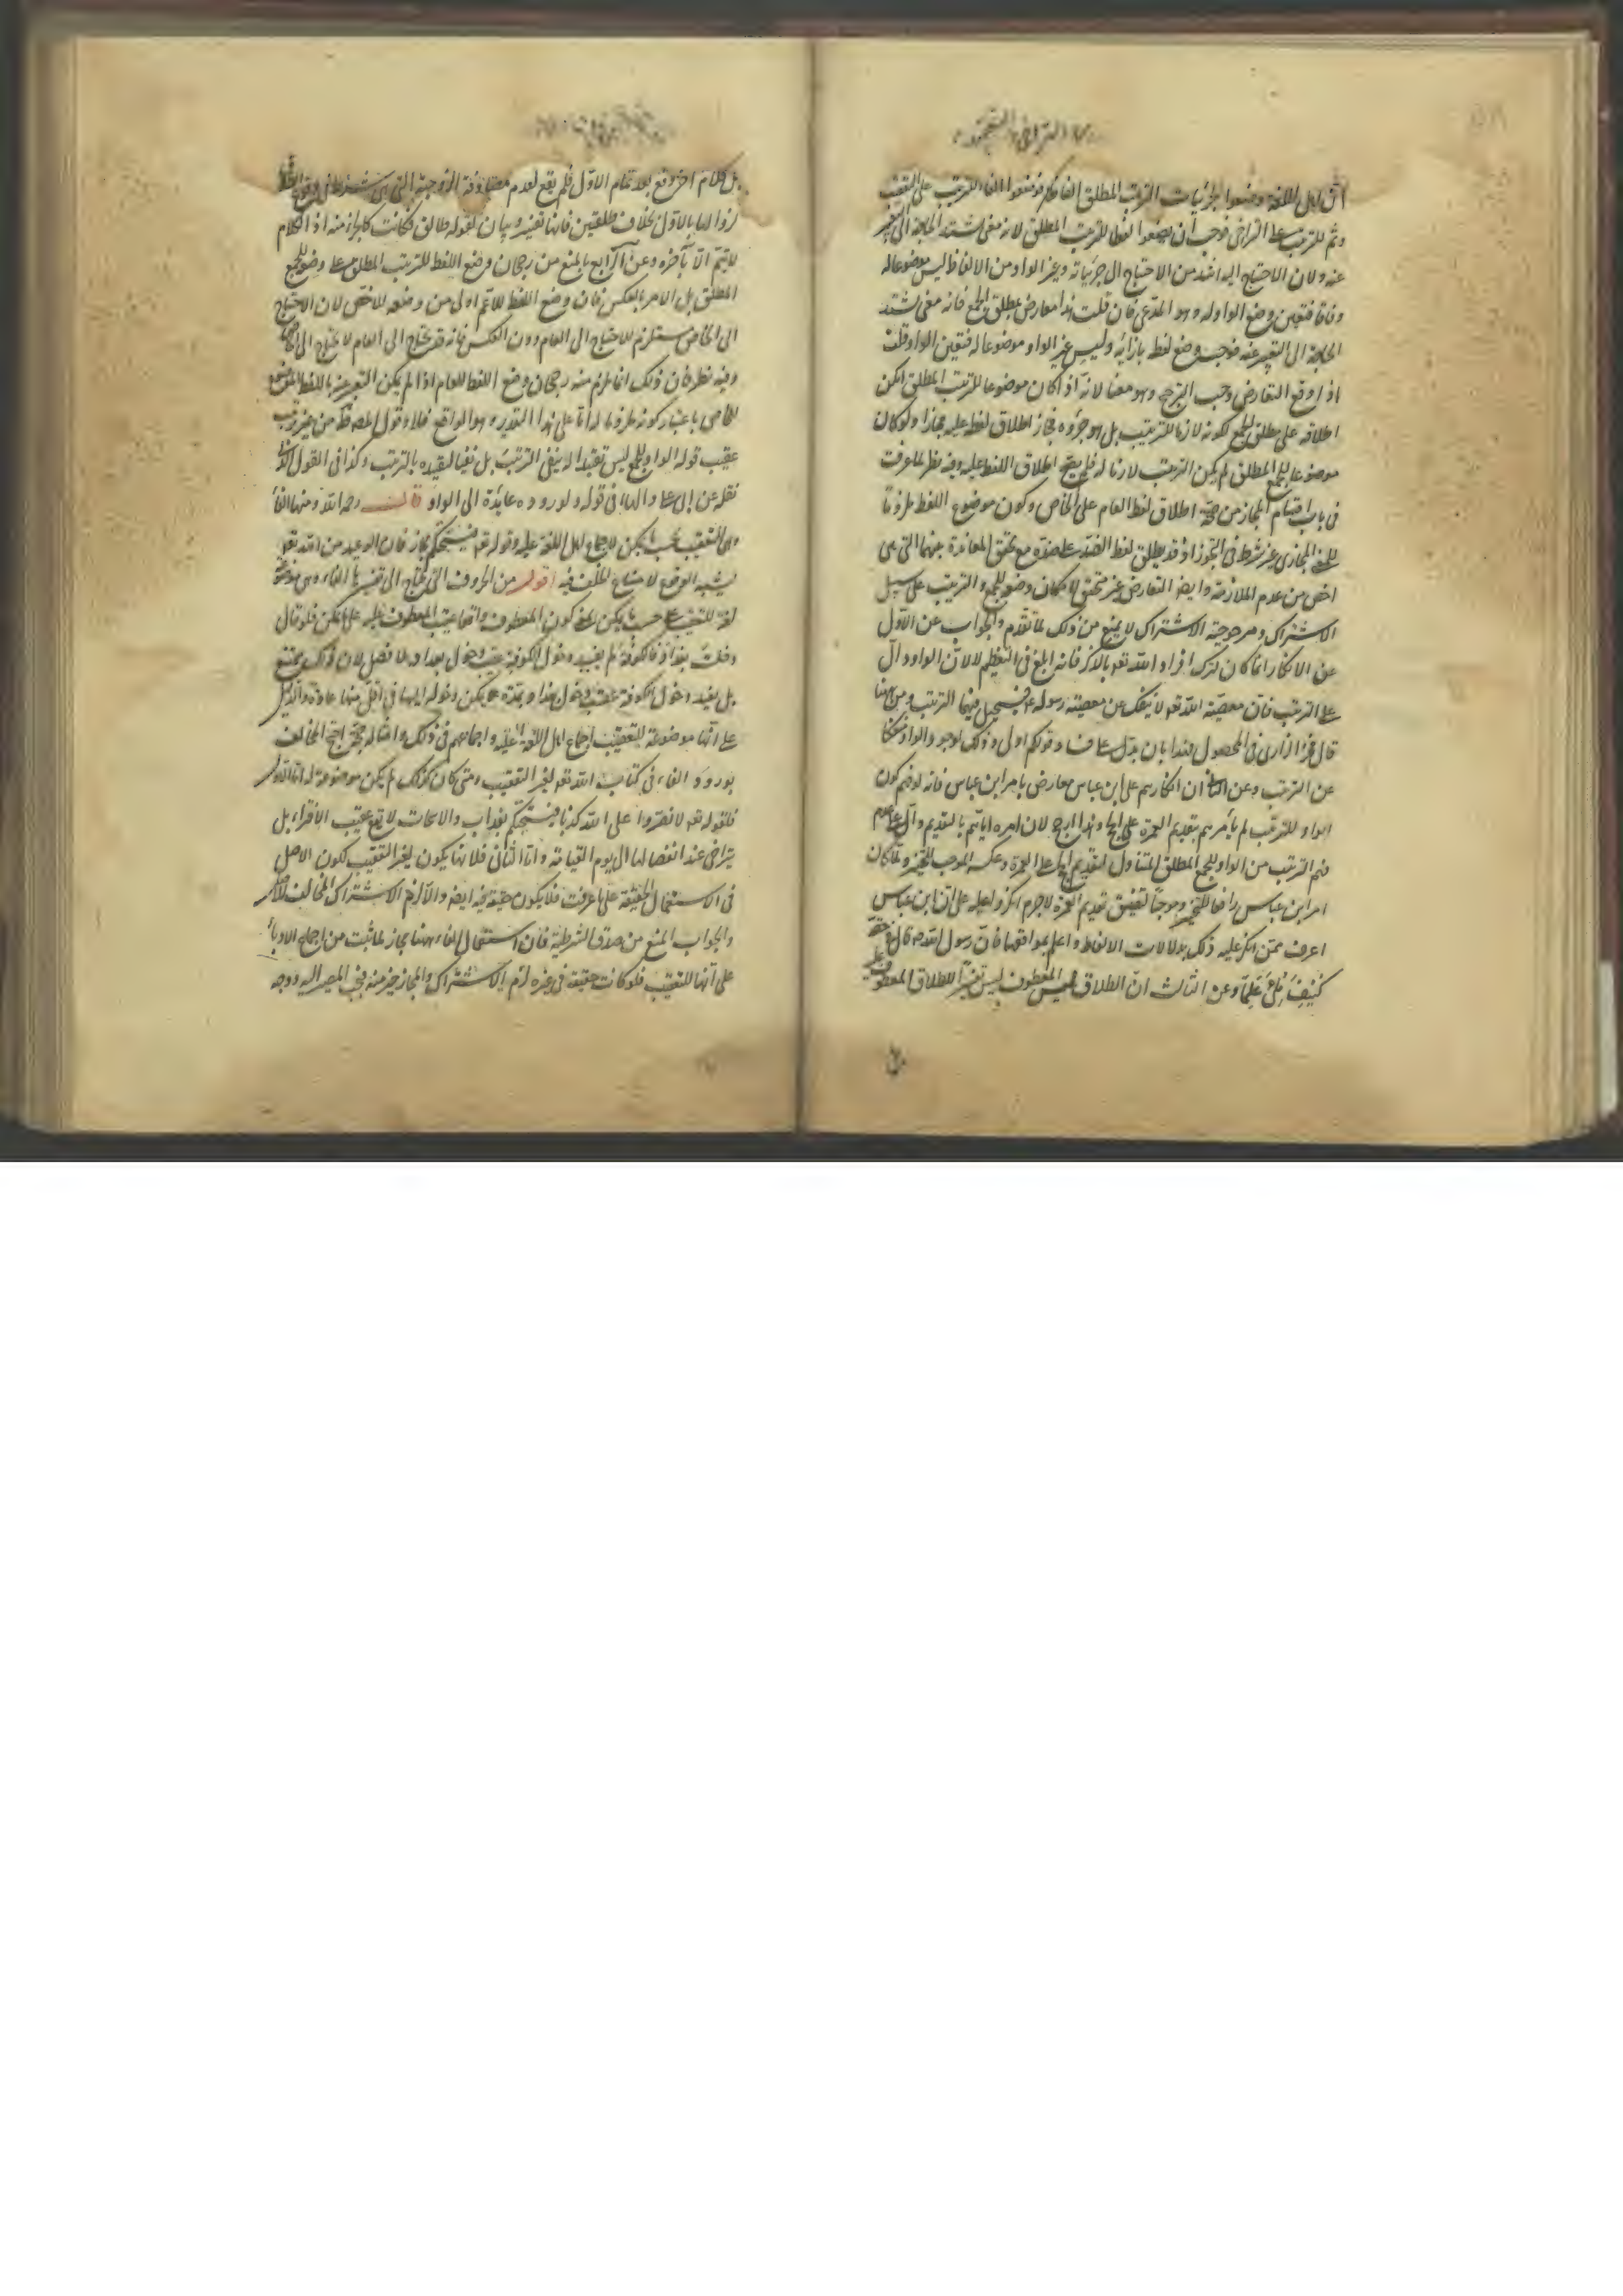 اهل اللغة وضعوا جزئيات الترتيب المطلق الفاظا فوضعوا الفاء للترتيب على التعقيب
وثم للترتيب على التراخى فوجب ان يضعوا لفظا للترتيب المطلق لانه معنى تشتد الحاجة الى التعبير
عنه ولان الاحتياج اليه اشد من الاحتياج الى جزئياته وغير الواو من الالفاظ ليس موضوعا له
وفاقا فتعين وضع الواو له وهو المدعى فان قلت هذا معارض بمطلق الجمع فانه معنى تشتد
الحاجة الى التعبير عنه فوجب وضع لفظ بازائه وليس غير الواو موضوعا له فتعين الواو قلت
اذا وقع التعارض وجب الترجيح وهو معنا لانه اذا كان موضوعا للترتيب المطلق امكن
اطلاقه على مطلق الجمع لكونه لازما للترتيب بل هو جزؤه فجاز اطلاق لفظه عليه مجازا ولو كان
موضوعا للجمع المطلق لم يكن الترتيب لازما له فلم يصح اطلاق اللفظ عليه وفيه نظر لما عرفت
فى باب اقسام المجاز من صحة اطلاق لفظ العام على الخاص وكون موضوع اللفظ ملزوما
للمعنى المجازى غير شرط فى التجوز اذ قد يطلق لفظ الضد على ضده مع تحقق المعاندة بينهما التى هى
اخص من عدم الملازمة وايضا التعارض غير متحقق لامكان وضعه للجمع والترتيب على سبيل
الاشتراك ومرجوحية الاشتراك لا يمنع من ذلك لما تقدم والجواب عن الاول
عن الانكار انما كان لترك افراد الله تعه بالذكر فانه ابلغ فى التعظيم لا لان الواو دال
على الترتيب فان معصية الله تعه لا ينفك عن معصية رسوله فيستحيل فيهما الترتيب ومن ههنا
قال فخر الرازى فى المحصول هذا بان يدل على فساد قولكم اولى وذلك لوجود الواو منفكا
عن الترتيب وعن الثانى ان انكارهم على ابن عباس معارض بامر ابن عباس فانه لو فهم كون
الواو للترتيب لم يأمرهم بتقديم العمرة على الحج وهذا ارجح لان امره اياهم بالتقديم دال على عدم
فهم الترتيب من الواو للجمع المطلق المتناول لتقديم الحج على العمرة وعكسه الموجب للتخيير ولما كان
امر ابن عباس رافعا للتخيير وموجبا لتعيين تقديم العمرة لاجرم انكروا عليه على ان ابن عباس
اعرف ممن انكر عليه ذلك بدلالات الالفاظ واعلم بمواقعها فان رسول الله ص قال فى حقه
كنيف ملئ علما وعن الثالث ان الطلاق المعطوف ليس تفسيرا للطلاق المعطوف عليه
بل كلام اخر وقع بعد تمام الاول فلم يقع لعدم مصادفة الزوجية التى هى شرط
زوالها بالاول بخلاف طلقتين فانها تفسير وبيان لقوله طالق فكانت كالجزء منه اذ الكلام
لا يتم الا بآخره وعن الرابع بالمنع من رجحان وضع اللفظ للترتيب المطلق على وضعه للجمع
المطلق بل الامر بالعكس فان وضع اللفظ للاعم اولى من وضعه للاخص لان الاحتياج
الى الخاص مستلزم للاحتياج الى العام دون العكس فانه قد يحتاج الى العام لا يحتاج الى الخاص
وفيه نظر فان ذلك انما يلزم منه رجحان وضع اللفظ للعام اذا لم يكن التعبير عنه باللفظ الموضوع
للخاص باعتبار كونه ملزوما له اما على هذا التقدير وهو الواقع فلا وقول المصنف من غير ترتيب
عقيب قوله الواو للجمع ليس تقييدا له بنفى الترتيب بل نفيا لتقييده بالترتيب وكذا فى القول الذى
نقله عن ابى على والهاء فى قوله ولوروده عايدة الى الواو قال رحمه الله ومنها الفاء
وهى للتعقيب بحسب ما يمكن لاجماع اهل اللغة عليه وقوله تعه فيسحتكم مجاز فان الوعيد من الله تعه
يشبه الواقع لامتناع الخلف فيه اقول من الحروف التى يحتاج الى تفسيرها الفاء وهى موضوعة
لغة للتعقيب على حسب ما يمكن بمعنى كون المعطوف واقعا عقيب المعطوف عليه على ما يمكن فلو قال
دخلت بغداد فالكوفة لم يفيد دخول الكوفة عقيب دخول بغداد بلا فصل لان ذلك ممتنع
بل يفيد دخول الكوفة عقيب دخول بغداد بمدة يمكن دخوله اليها فى اقل منها عادة والدليل
على انها موضوعة للتعقيب اجماع اهل اللغة عليه واجماعهم فى ذلك وامثاله حجة احتج المخالف
بورود الفاء فى كتاب الله تعه لغير التعقيب ومتى كان كذلك لم يكن موضوعة له اما الاول
فلقوله تعه لا تفتروا على الله كذبا فيسحتكم بعذاب والاسحات لا يقع عقيب الافتراء بل
يتراخى عنه انفصالها الى يوم القيامة واما الثانى فلانها يكون لغير التعقيب لكون الاصل
فى الاستعمال الحقيقة على ما عرفت فلا يكون حقيقة فيه ايضا والا لزم الاشتراك المخالف للاصل
والجواب المنع من صدق الشرطية فان استعمال الفاء ههنا مجاز لما ثبت من اجماع الادباء
على انها للتعقيب فلو كانت حقيقة فى غيره لزم الاشتراك والمجاز خير منه فيجب المصير اليه ووجه